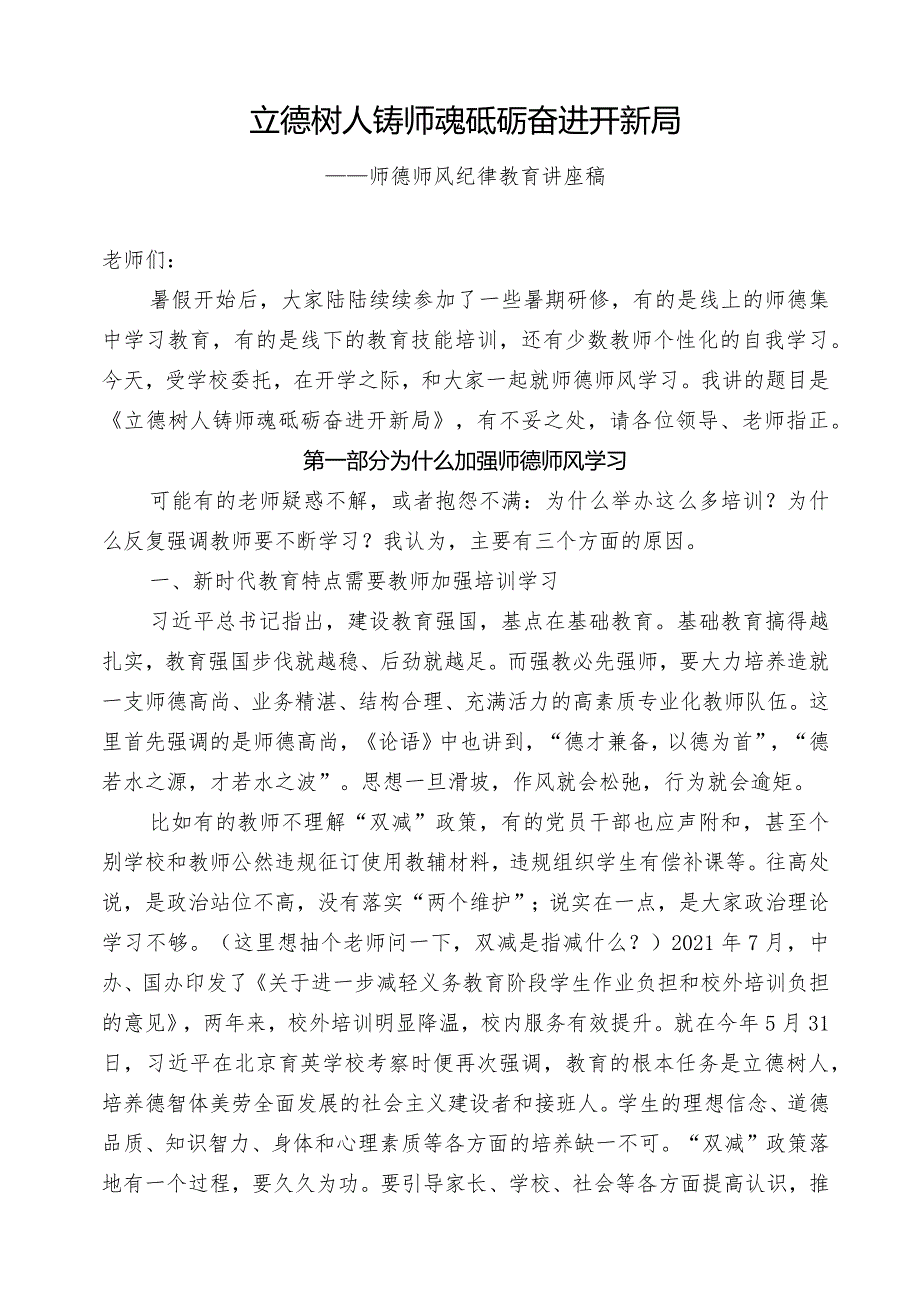 立德树人铸师魂砥砺奋进开新局
——师德师风纪律教育讲座稿
老师们：
暑假开始后，大家陆陆续续参加了一些暑期研修，有的是线上的师德集
中学习教育，有的是线下的教育技能培训，还有少数教师个性化的自我学习。
今天，受学校委托，在开学之际，和大家一起就师德师风学习。我讲的题目是
《立德树人铸师魂砥砺奋进开新局》，有不妥之处，请各位领导、老师指正。
第一部分为什么加强师德师风学习
可能有的老师疑惑不解，或者抱怨不满：为什么举办这么多培训？为什
么反复强调教师要不断学习？我认为，主要有三个方面的原因。
一、新时代教育特点需要教师加强培训学习
习近平总书记指出，建设教育强国，基点在基础教育。基础教育搞得越
扎实，教育强国步伐就越稳、后劲就越足。而强教必先强师，要大力培养造就
一支师德高尚、业务精湛、结构合理、充满活力的高素质专业化教师队伍。这
里首先强调的是师德高尚，《论语》中也讲到，“德才兼备，以德为首”，“德
若水之源，才若水之波”。思想一旦滑坡，作风就会松弛，行为就会逾矩。
比如有的教师不理解“双减”政策，有的党员干部也应声附和，甚至个
别学校和教师公然违规征订使用教辅材料，违规组织学生有偿补课等。往高处
说，是政治站位不高，没有落实“两个维护”；说实在一点，是大家政治理论
学习不够。（这里想抽个老师问一下，双减是指减什么？）2021 年 7 月，中
办、国办印发了《关于进一步减轻义务教育阶段学生作业负担和校外培训负担
的意见》，两年来，校外培训明显降温，校内服务有效提升。就在今年 5 月 31
日，习近平在北京育英学校考察时便再次强调，教育的根本任务是立德树人，
培养德智体美劳全面发展的社会主义建设者和接班人。学生的理想信念、道德
品质、知识智力、身体和心理素质等各方面的培养缺一不可。“双减”政策落
地有一个过程，要久久为功。要引导家长、学校、社会等各方面提高认识，推